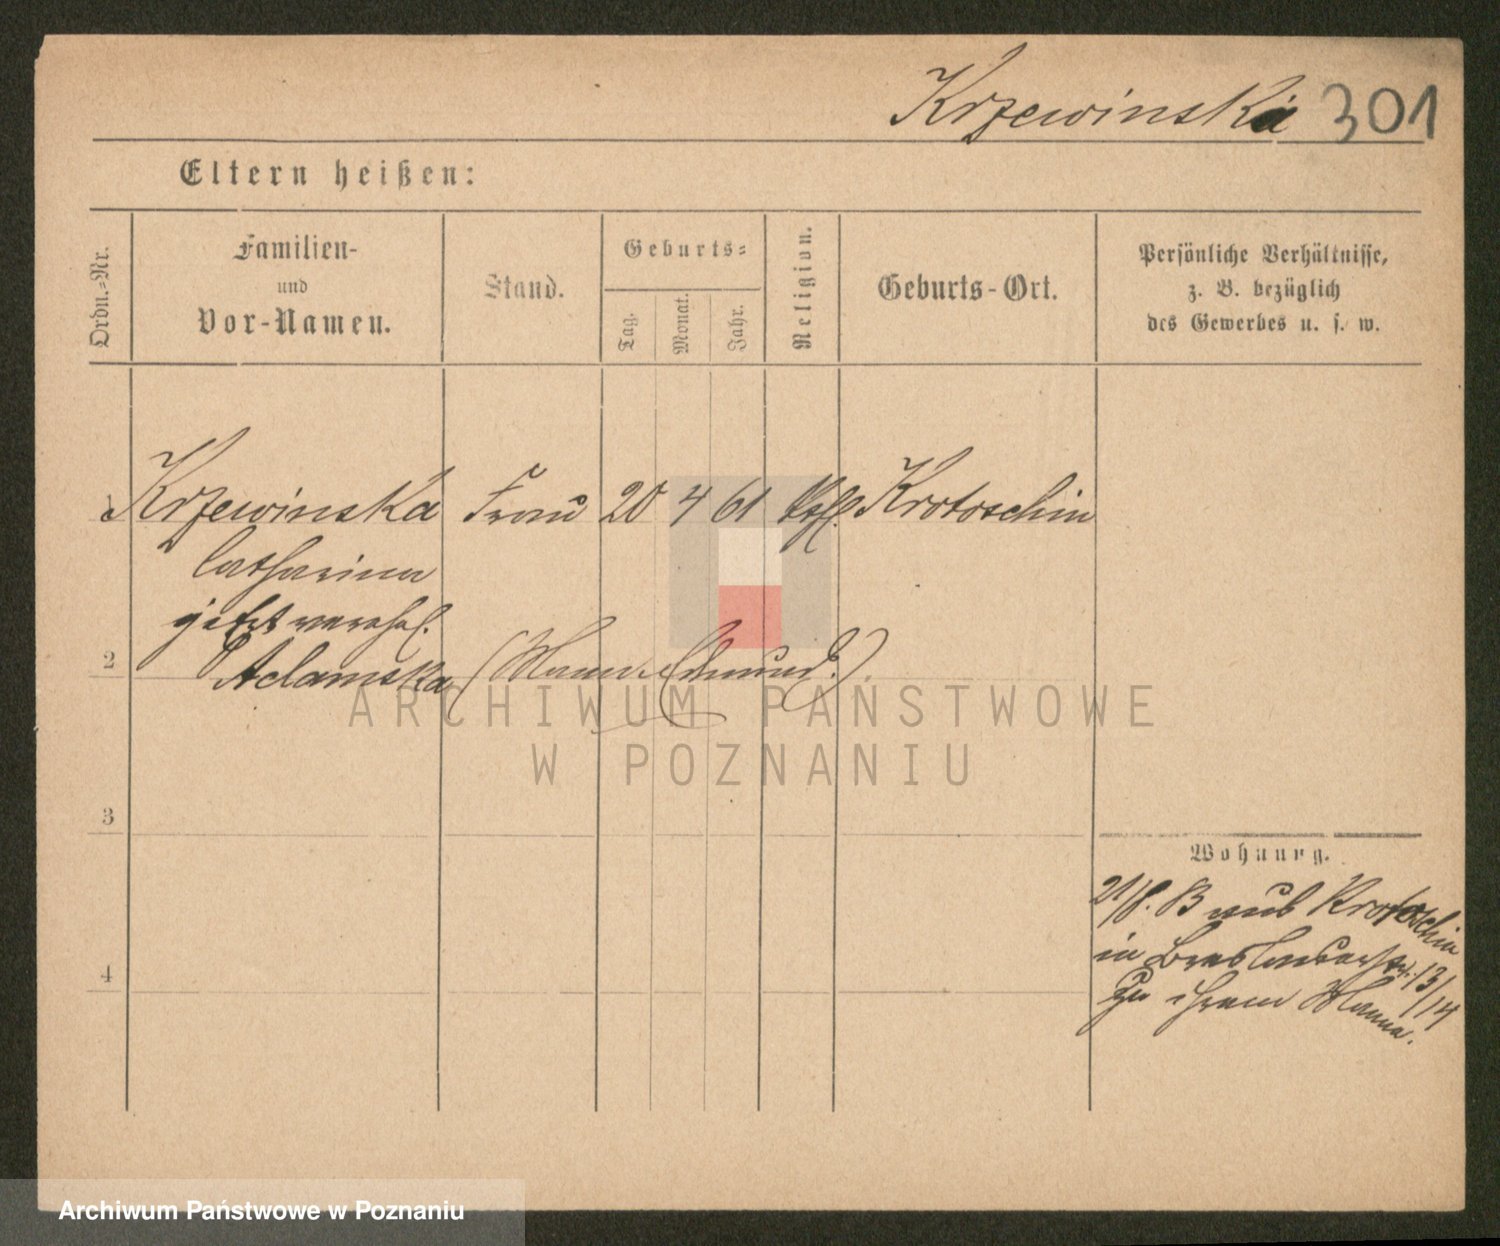 Krzewinska 301
Eltern heißen:
Ordn.-Nr.
Familien-
und
Vor-Namen.
Stand.
Geburts-
Tag.
Monat.
Jahr.
Religion.
Geburts-Ort.
Persönliche Verhältnisse,
z. B. bezüglich
des Gewerbes u. s. w.
1 Krzewinska Frau 20 4 61 kath. Krotoschin
Catharina
jetzt verehel.
2 Adamska (Mann Edmund.)
ARCHIWUM PAŃSTWOWE
W POZNANIU
3
Wohnung.
21/8. 83 aus Krotoschin
in Breslauerstr. 13/14
zu ihrem Manne.
4
Archiwum Państwowe w Poznaniu